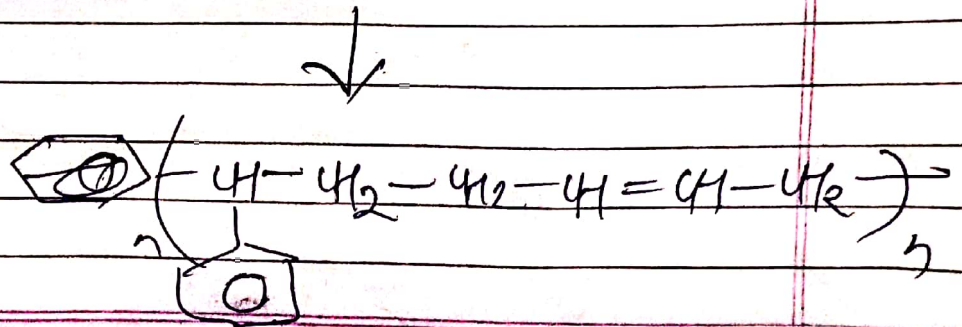 ( - CH - CH2 - CH2 - CH = CH - CH2 - )
n n